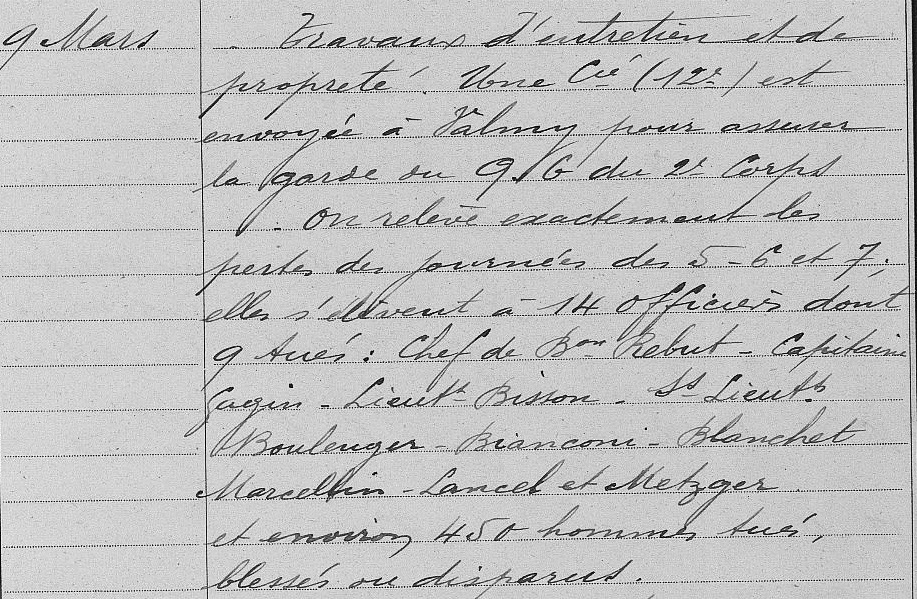 9 Mars . Travaux d'entretien et de
propreté. Une Cie (12e) est
envoyée à Valmy pour assurer
la garde du Q.G du 2e Corps
. On relève exactement les
pertes des journées des 5-6 et 7;
elles s'élèvent à 14 officiers dont
9 tués: Chef de Bon Rebut - Capitaine
Gagin - Lieutt Bisson - Ss-Lieutts
Boulenger - Bianconi - Blanchet
Marcellin - Lancel et Metzger
et environ 450 hommes tués,
blessés ou disparus.